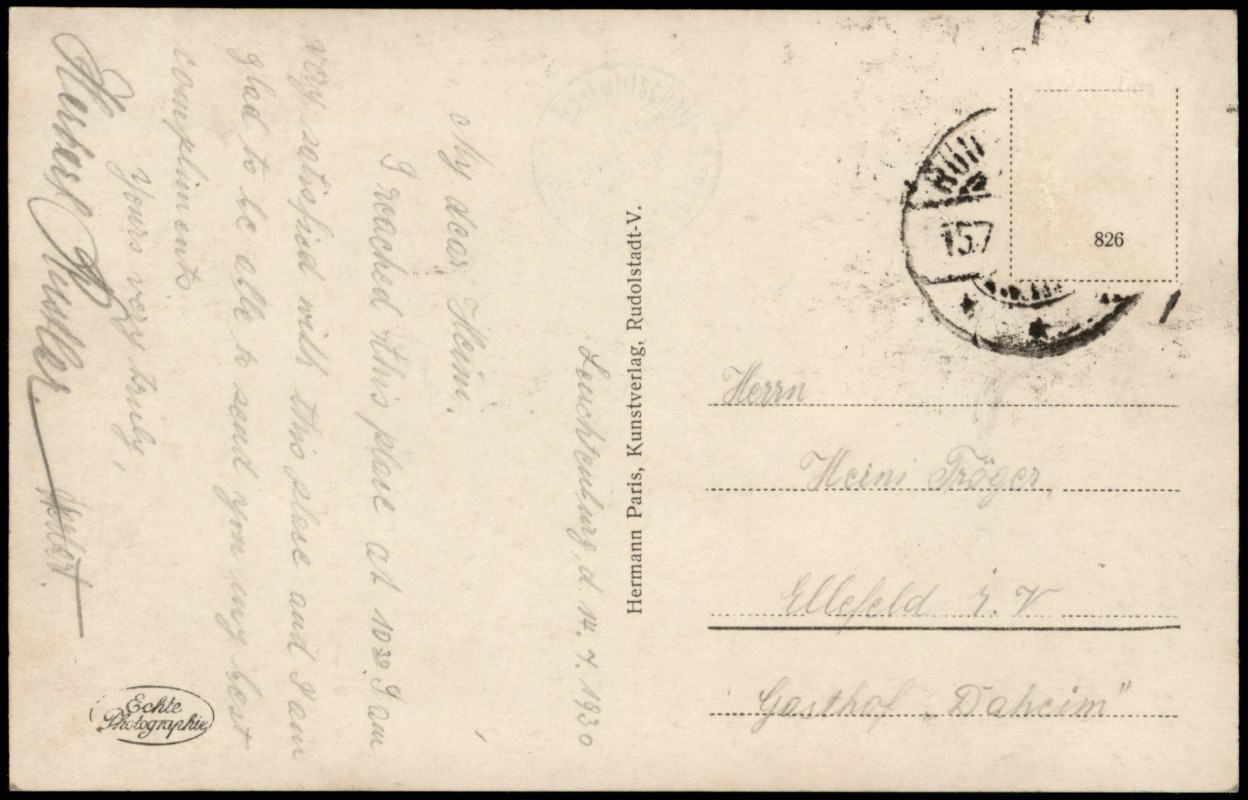 Leuchtenburg, d. 14. 7. 1930
My dear Heini.
I reached this place at 10 30. I am
very satisfied with this place and I am
glad to be able to send you my best
compliments.
Yours very truly,
Herbert
Herbert.
Echte
Photographie
Hermann Paris, Kunstverlag, Rudolstadt-V.
15.7
826
Herrn
Heini Tröger,
Ellefeld i. V
Gasthof „Daheim“